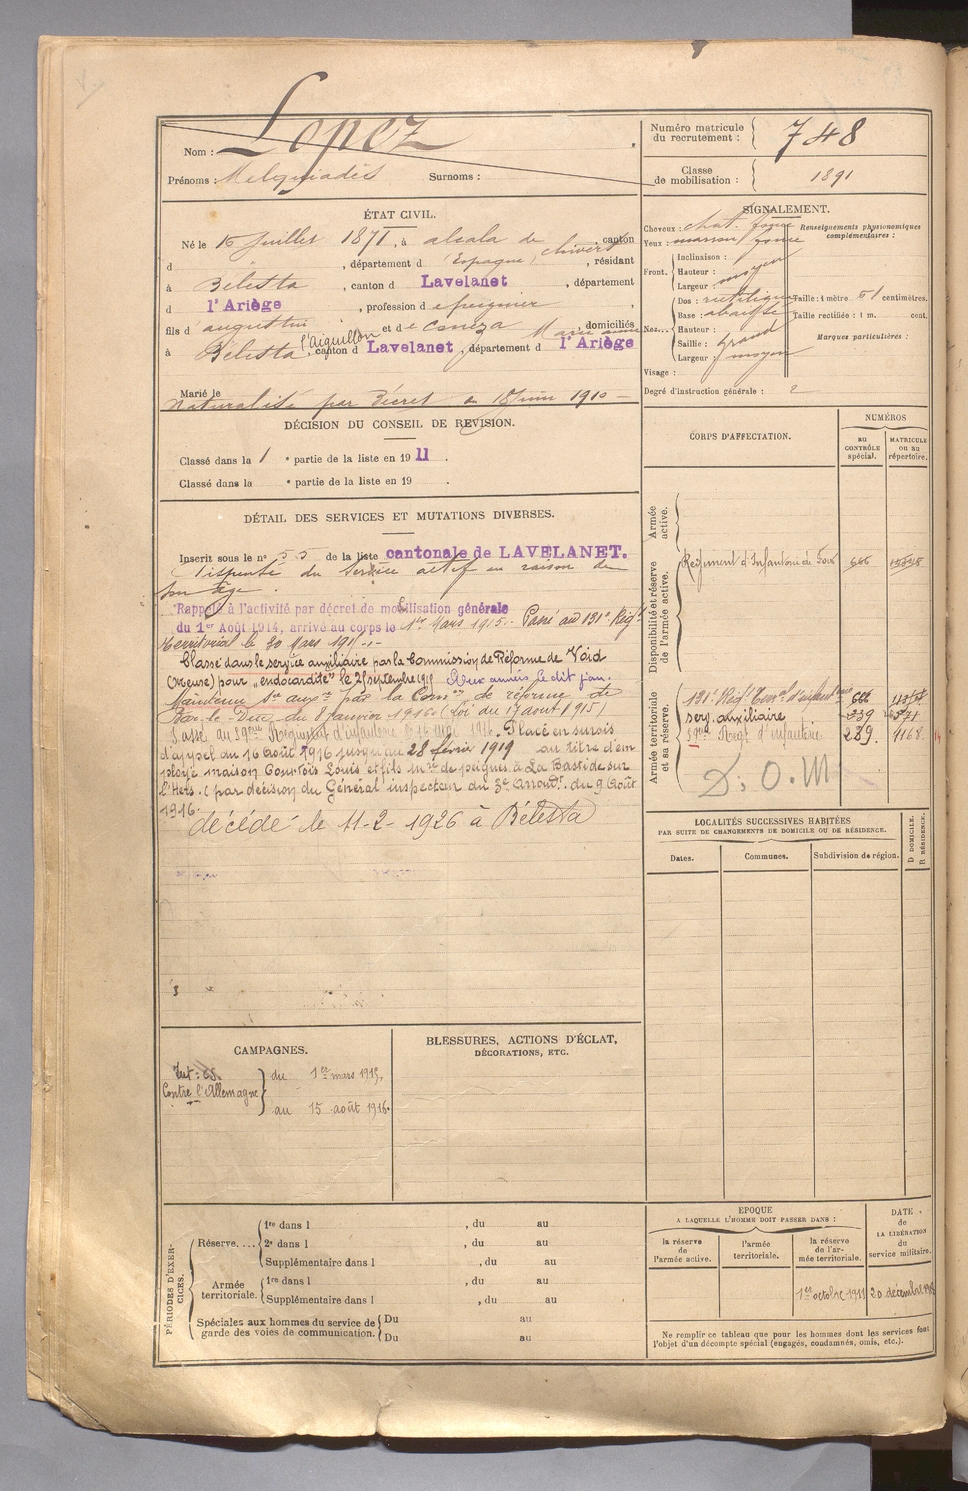 Nom : Lopez
Prénoms : Melquiadès Surnoms :
Numéro matricule du recrutement : 748
Classe de mobilisation : 1891
ÉTAT CIVIL.
Né le 15 Juillet 1871, à alcala de chivert, canton
d (Espagne), département d , résidant
à Bélesta, canton d Lavelanet, département
d l'Ariège, profession de peignier,
fils d augustin et de Marie anne, domiciliés
à Bélesta, l'Aiguillon canton d Lavelanet, département d l'Ariège
Marié le
Naturalisé par Décret du Juin 1910 —
SIGNALEMENT.
Cheveux : chat. foncé
Yeux : marron foncé
Front. Inclinaison :
Hauteur : moyen
Largeur :
Nez... Dos : rectiligne
Base : abaissé
Hauteur :
Saillie : grand
Largeur : moyen
Visage :
Renseignements physionomiques complémentaires :
Taille : 1 mètre 61 centimètres.
Taille rectifiée : 1 m. cent.
Marques particulières :
Degré d'instruction générale : 2
DÉCISION DU CONSEIL DE REVISION.
Classé dans la 1 e partie de la liste en 1911.
Classé dans la e partie de la liste en 19 .
DÉTAIL DES SERVICES ET MUTATIONS DIVERSES.
Inscrit sous le n° 55 de la liste cantonale de LAVELANET.
Dispensé du Service actif en raison de
son âge.
Rappelé à l'activité par décret de mobilisation générale
du 1er Août 1914, arrivé au corps le 1er Mars 1915. Passé au 131e Régt
territorial le 30 Mars 1915.
Classé dans le service auxiliaire par la Commission de Réforme de Void
(Meuse) pour "endocardite" le 25 septembre 1915 Aux armées le dit jour.
Maintenu Sce auxre par la Comon de réforme de
Bar-le-Duc du 8 janvier 1916 (loi du 17 août 1915)
Passé au 59eme Régiment d'infanterie le 1916. Placé en sursis
d'appel du 16 Août 1916 jusqu'au 28 février 1919 au titre d'em
ployé maison Courtois Louis et fils de peignes à La Bastide sur
l'Hers. (par décision du Général inspecteur du 3e Arrondt. du 9 Août
1916.
décédé le 11-2-1926 à Bélesta
CORPS D'AFFECTATION.
NUMÉROS
AU CONTRÔLE spécial.
MATRICULE ou au répertoire.
Armée active.
Disponibilité et réserve de l'armée active.
Régiment d'Infanterie de Foix 666
Armée territoriale et sa réserve.
131e Régt Terral d'infanterie 666
serv. auxiliaire 239
59eme Régt d'infanterie 239. 4168
D. O. M
LOCALITÉS SUCCESSIVES HABITÉES
PAR SUITE DE CHANGEMENTS DE DOMICILE OU DE RÉSIDENCE.
Dates. Communes. Subdivision de région. D DOMICILE. R RÉSIDENCE.
CAMPAGNES.
Contre l'Allemagne
du 1er mars 1915,
au 15 août 1916.
BLESSURES, ACTIONS D'ÉCLAT,
DÉCORATIONS, ETC.
PÉRIODES D'EXERCICES.
Réserve.... 1re dans l , du au
2e dans l , du au
Supplémentaire dans l , du au
Armée territoriale. 1re dans l , du au
Supplémentaire dans l , du au
Spéciales aux hommes du service de garde des voies de communication. Du au
Du au
EPOQUE
A LAQUELLE L'HOMME DOIT PASSER DANS :
la réserve de l'armée active.
l'armée territoriale.
la réserve de l'armée territoriale.
DATE de LA LIBÉRATION du service militaire.
1er octobre 1911
20 décembre 1918
Ne remplir ce tableau que pour les hommes dont les services font
l'objet d'un décompte spécial (engagés, condamnés, omis, etc.).